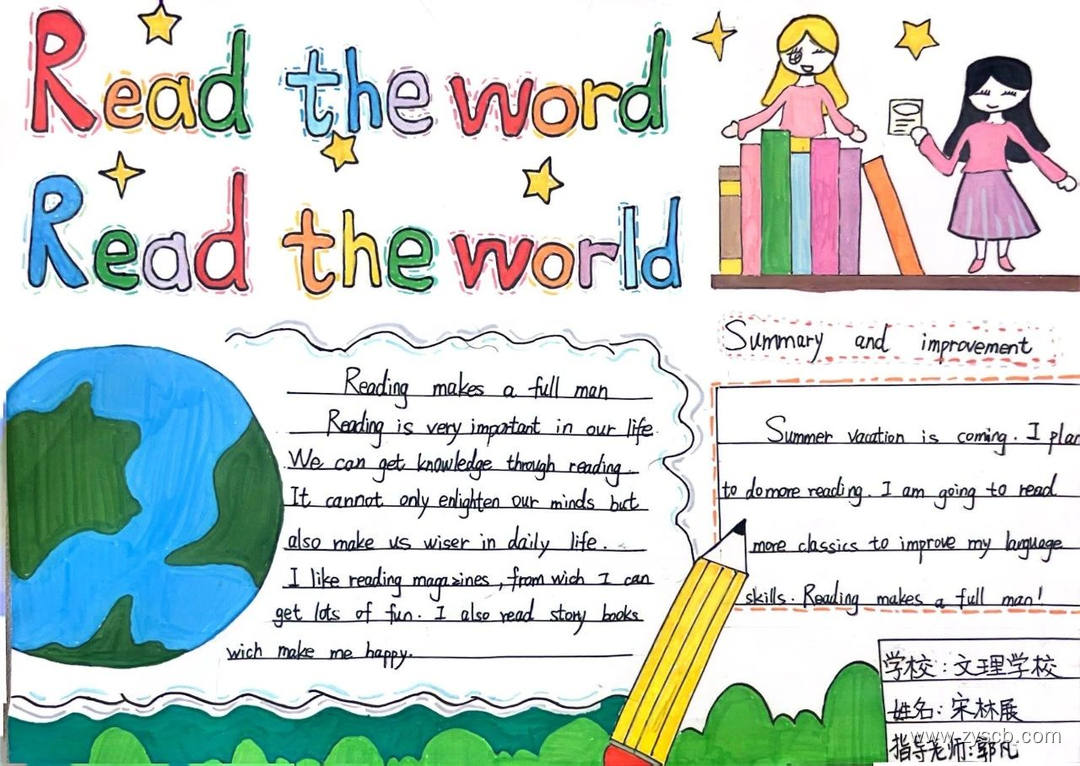 Read the word
Read the world
Reading makes a full man
Reading is very important in our life.
We can get knowledge through reading.
It cannot only enlighten our minds but
also make us wiser in daily life.
I like reading magazines, from wich I can
get lots of fun. I also read story books
wich make me happy.
Summary and improvement
Summer vacation is coming. I plan
to do more reading. I am going to read
more classics to improve my language
skills. Reading makes a full man!
学校:文理学校
姓名:宋林展
指导老师:郭凡
www.zyscb.com